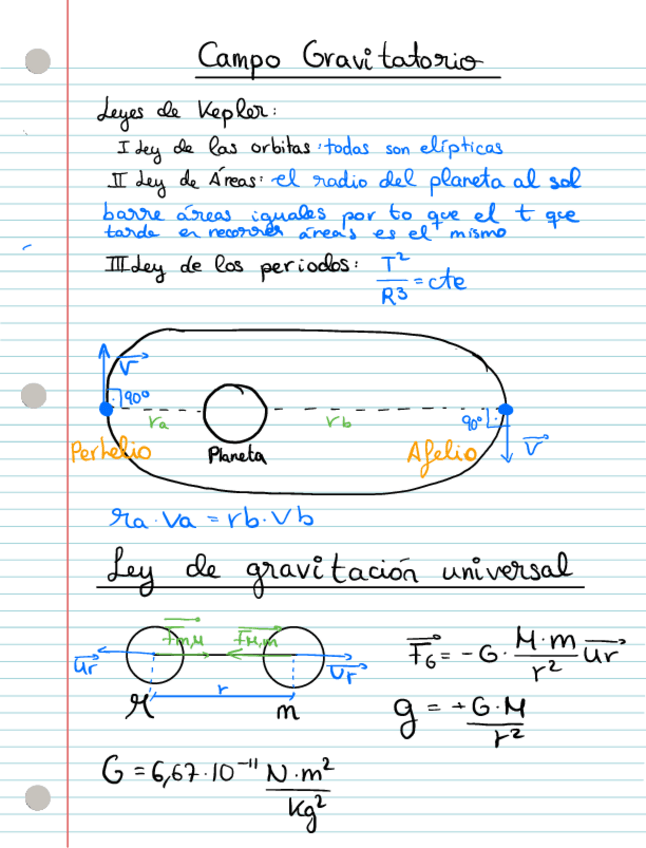 Campo Gravitatorio
Leyes de Kepler:
I Ley de las orbitas: todas son elípticas
II Ley de Áreas: el radio del planeta al sol
barre áreas iguales por to que el t que
tarda en recorrer áreas es el mismo
III Ley de los periodos: T²/R³ = cte
V
90º
ra
rb
90º
V
Perhelio
Planeta
Afelio
ra · Va = rb · Vb
Ley de gravitación universal
Fm,M
FM,m
ur
Ur
r
M
m
FG = -G · M·m/r² ur
g = +G·M/r²
G = 6,67·10⁻¹¹ N·m²/kg²